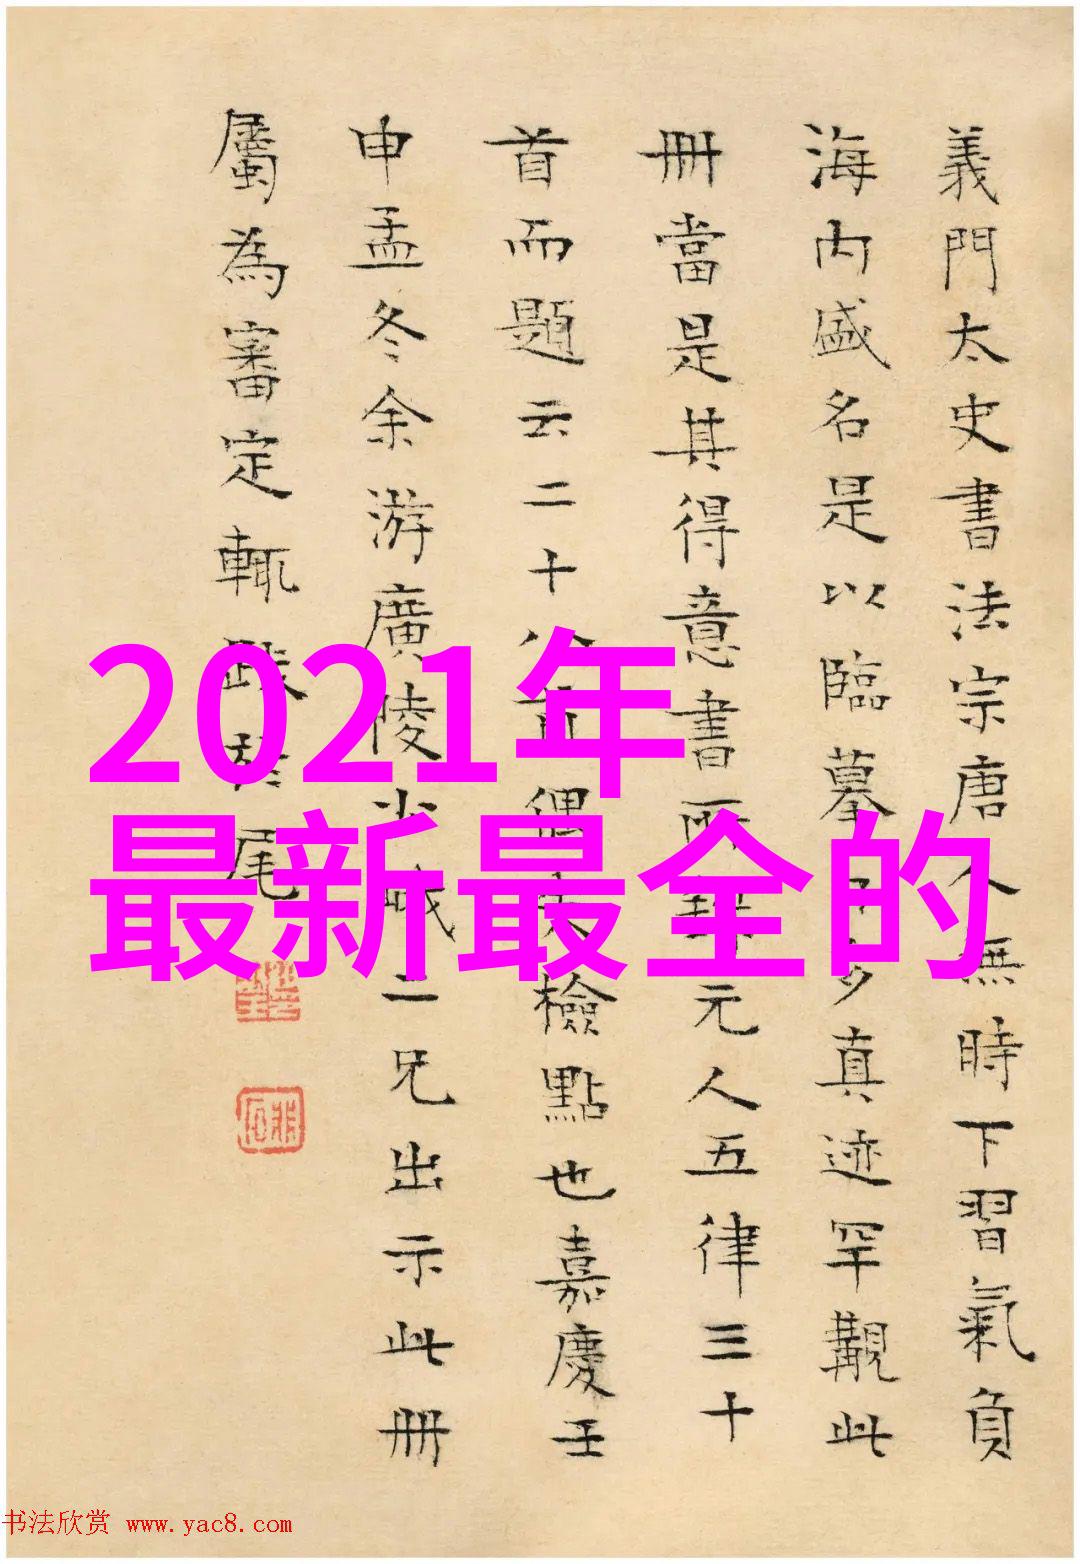 義門太史書法宗唐人無時下習氣負
海内盛名是以臨摹多真迹罕觀此
冊當是其得意書所錄元人五律三十
首而題云二十八首偶失檢點也嘉慶壬
申孟冬余游廣陵小峨二兄出示此冊
屬為審定輒跋於尾
2021年
最新最全的
书法欣赏 www.yac8.com